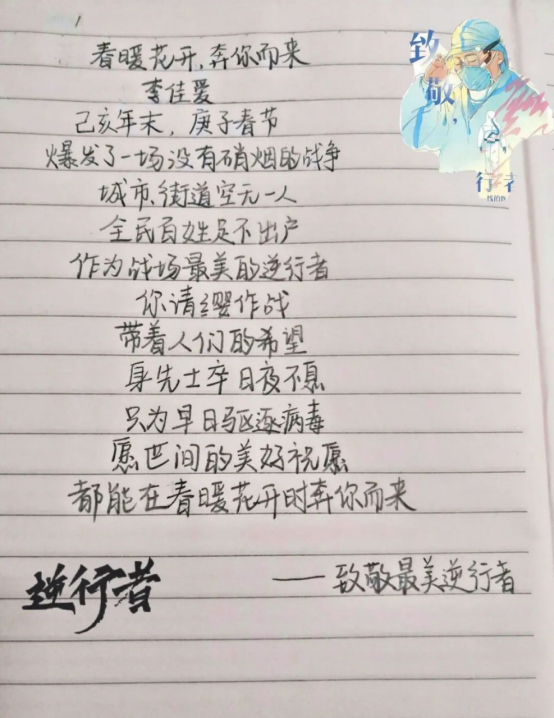 春暖花开,奔你而来
李佳爱
己亥年末,庚子春节
爆发了一场没有硝烟的战争
城市、街道空无一人
全民百姓足不出户
作为战场最美的逆行者
你请缨作战
带着人们的希望
身先士卒日夜不息
只为早日驱逐病毒
愿世间的美好祝愿
都能在春暖花开时奔你而来
——致敬最美逆行者
逆行者
致敬
行者